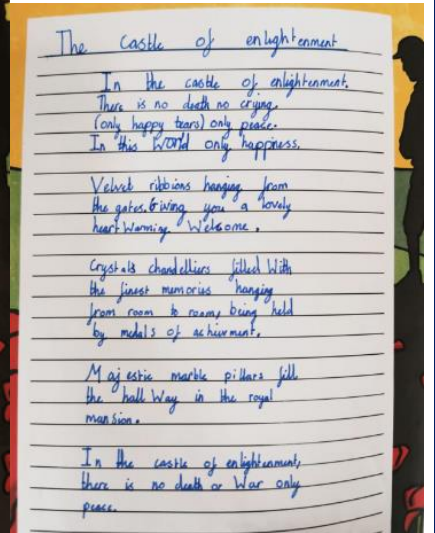 The Castle of enlightenment
In the castle of enlightenment.
There is no death no crying.
(only happy tears) only peace.
In this World only happiness.
Velvet ribbions hanging from
the gates. Giving you a lovely
heart Warming Welcome.
Crystals chandelliers filled With
the finest memories hanging
from room to room, being held
by medals of achievment.
Majestic marble pillars fill
the hall Way in the royal
mansion.
In the castle of enlightenment,
there is no death or War only
peace.